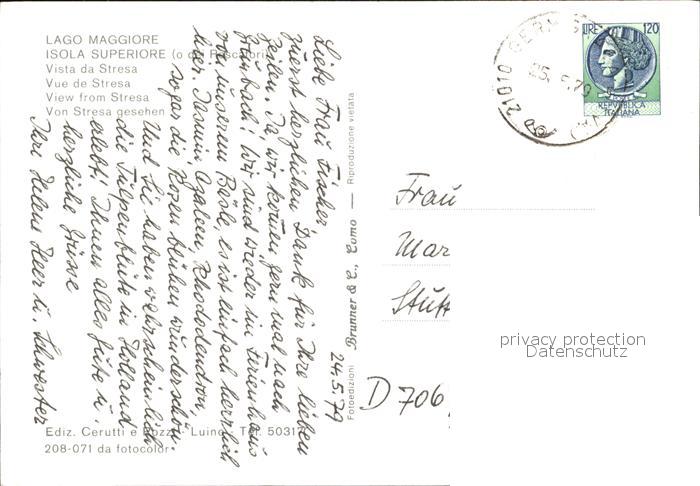 LAGO MAGGIORE
ISOLA SUPERIORE (o dei Pescatori)
Vista da Stresa
Vue de Stresa
View from Stresa
Von Stresa gesehen
Liebe Frau Fischer,
zuerst herzlichen Dank für Ihre lieben
Zeilen. Ja, wir kommen gern mal nach
Wir sind wieder im Ferienhaus
von unserm Bärle, es ist einfach herrlich
hier. Jasmin, Azaleen, Rhododendron,
sogar die Rosen blühen wunderschön.
Und Sie haben wahrscheinlich
die Tulpenblüte in Holland
erlebt. Ihnen alles Gute u.
herzliche Grüsse
Ihre Helene Heer u. Schwester
24.5.79
Fotoedizioni Brunner & C., Como — Riproduzione vietata
Ediz. Cerutti e Pozzi - Luino - Tel. 50317
208-071 da fotocolor
21010 GERM
25.5.79
LIRE 120
REPUBBLICA
ITALIANA
Frau
Mar
Stutt
D 706
privacy protection
Datenschutz